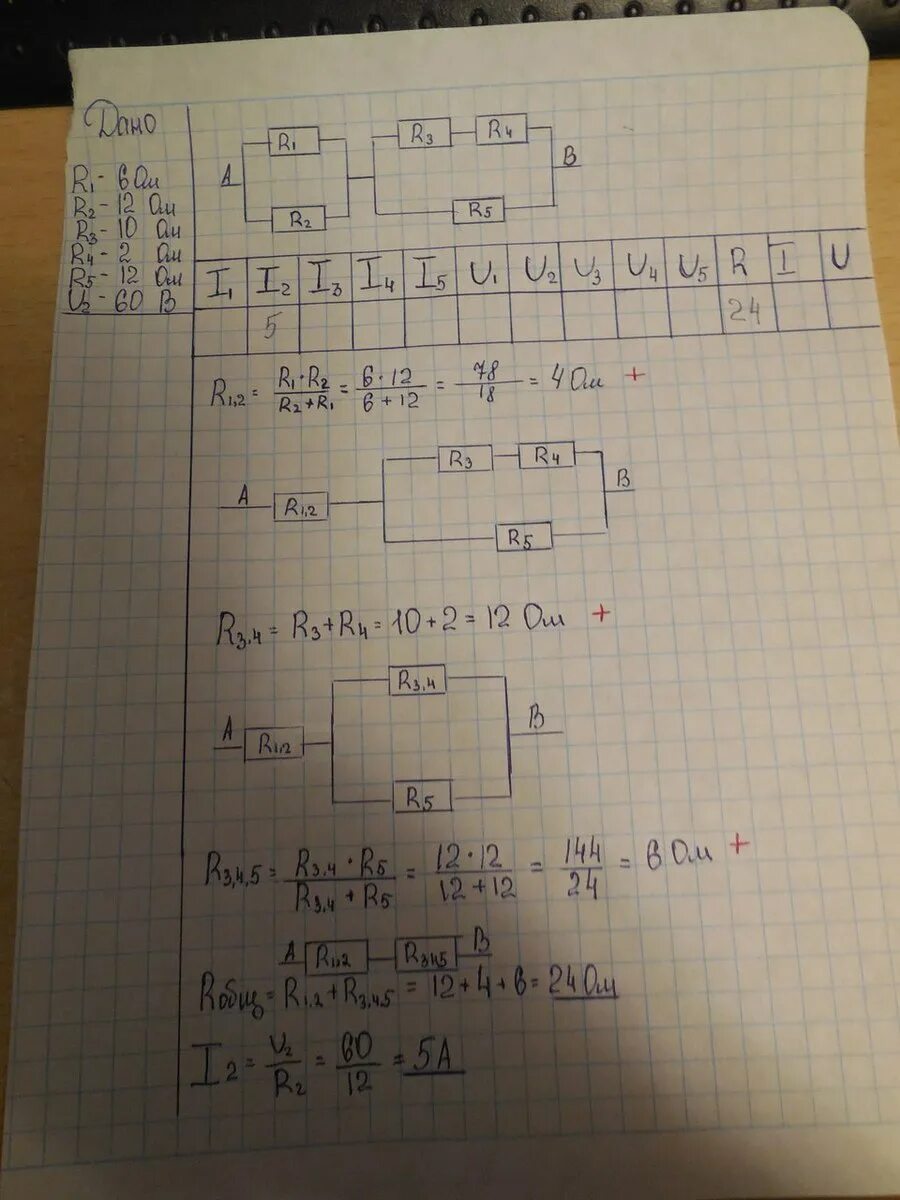 Дано
R1 - 6 Ом
R2 - 12 Ом
R3 - 10 Ом
R4 - 2 Ом
R5 - 12 Ом
U2 - 60 В
R1 R3 R4
A B
R2 R5
I1 I2 I3 I4 I5 U1 U2 U3 U4 U5 R I U
5 24
R1,2 = R1·R2 / R2+R1 = 6·12 / 6+12 = 78 / 18 = 4 Ом +
R3 R4
A R1,2 B
R5
R3,4 = R3 + R4 = 10 + 2 = 12 Ом +
R3,4
A R1,2 B
R5
R3,4,5 = R3,4·R5 / R3,4 + R5 = 12·12 / 12+12 = 144 / 24 = 6 Ом +
A R1,2 R345 B
Rобщ = R1,2 + R3,4,5 = 12 + 4 + 6 = 24 Ом
I2 = U2 / R2 = 60 / 12 = 5 А